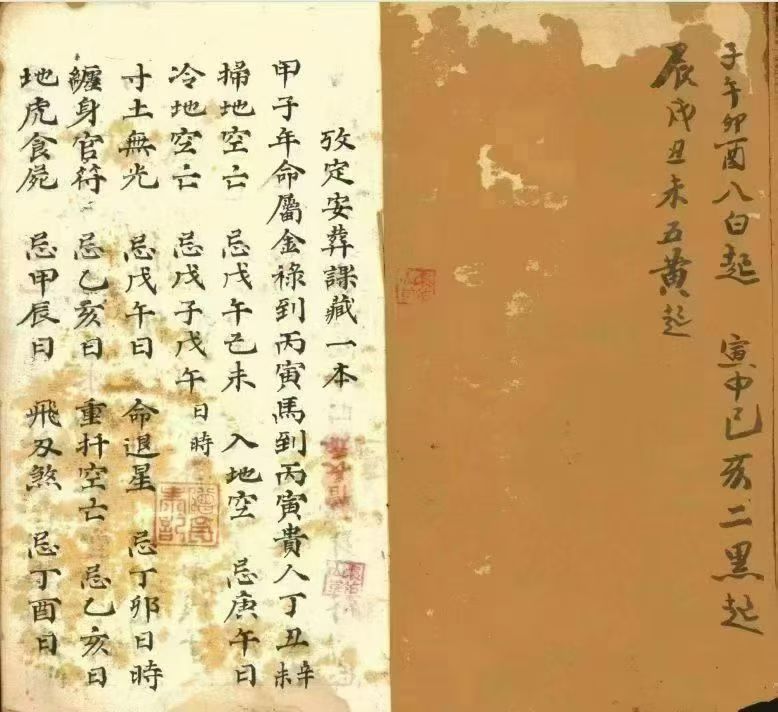 子午卯酉八白起　寅申巳亥二黑起
辰戌丑未五黄起
攷定安葬課藏一本
甲子年命屬金祿到丙寅馬到丙寅貴人丁丑辛未
掃地空亡　忌戊午己未　入地空　忌庚午日
冷地空亡　忌戊子戊午日時
寸土無光　忌戊午日　命退星　忌丁卯日時
纏身官符　忌乙亥日　重扦空亡　忌乙亥日
地虎食屍　忌甲辰日　飛刃煞　忌丁酉日